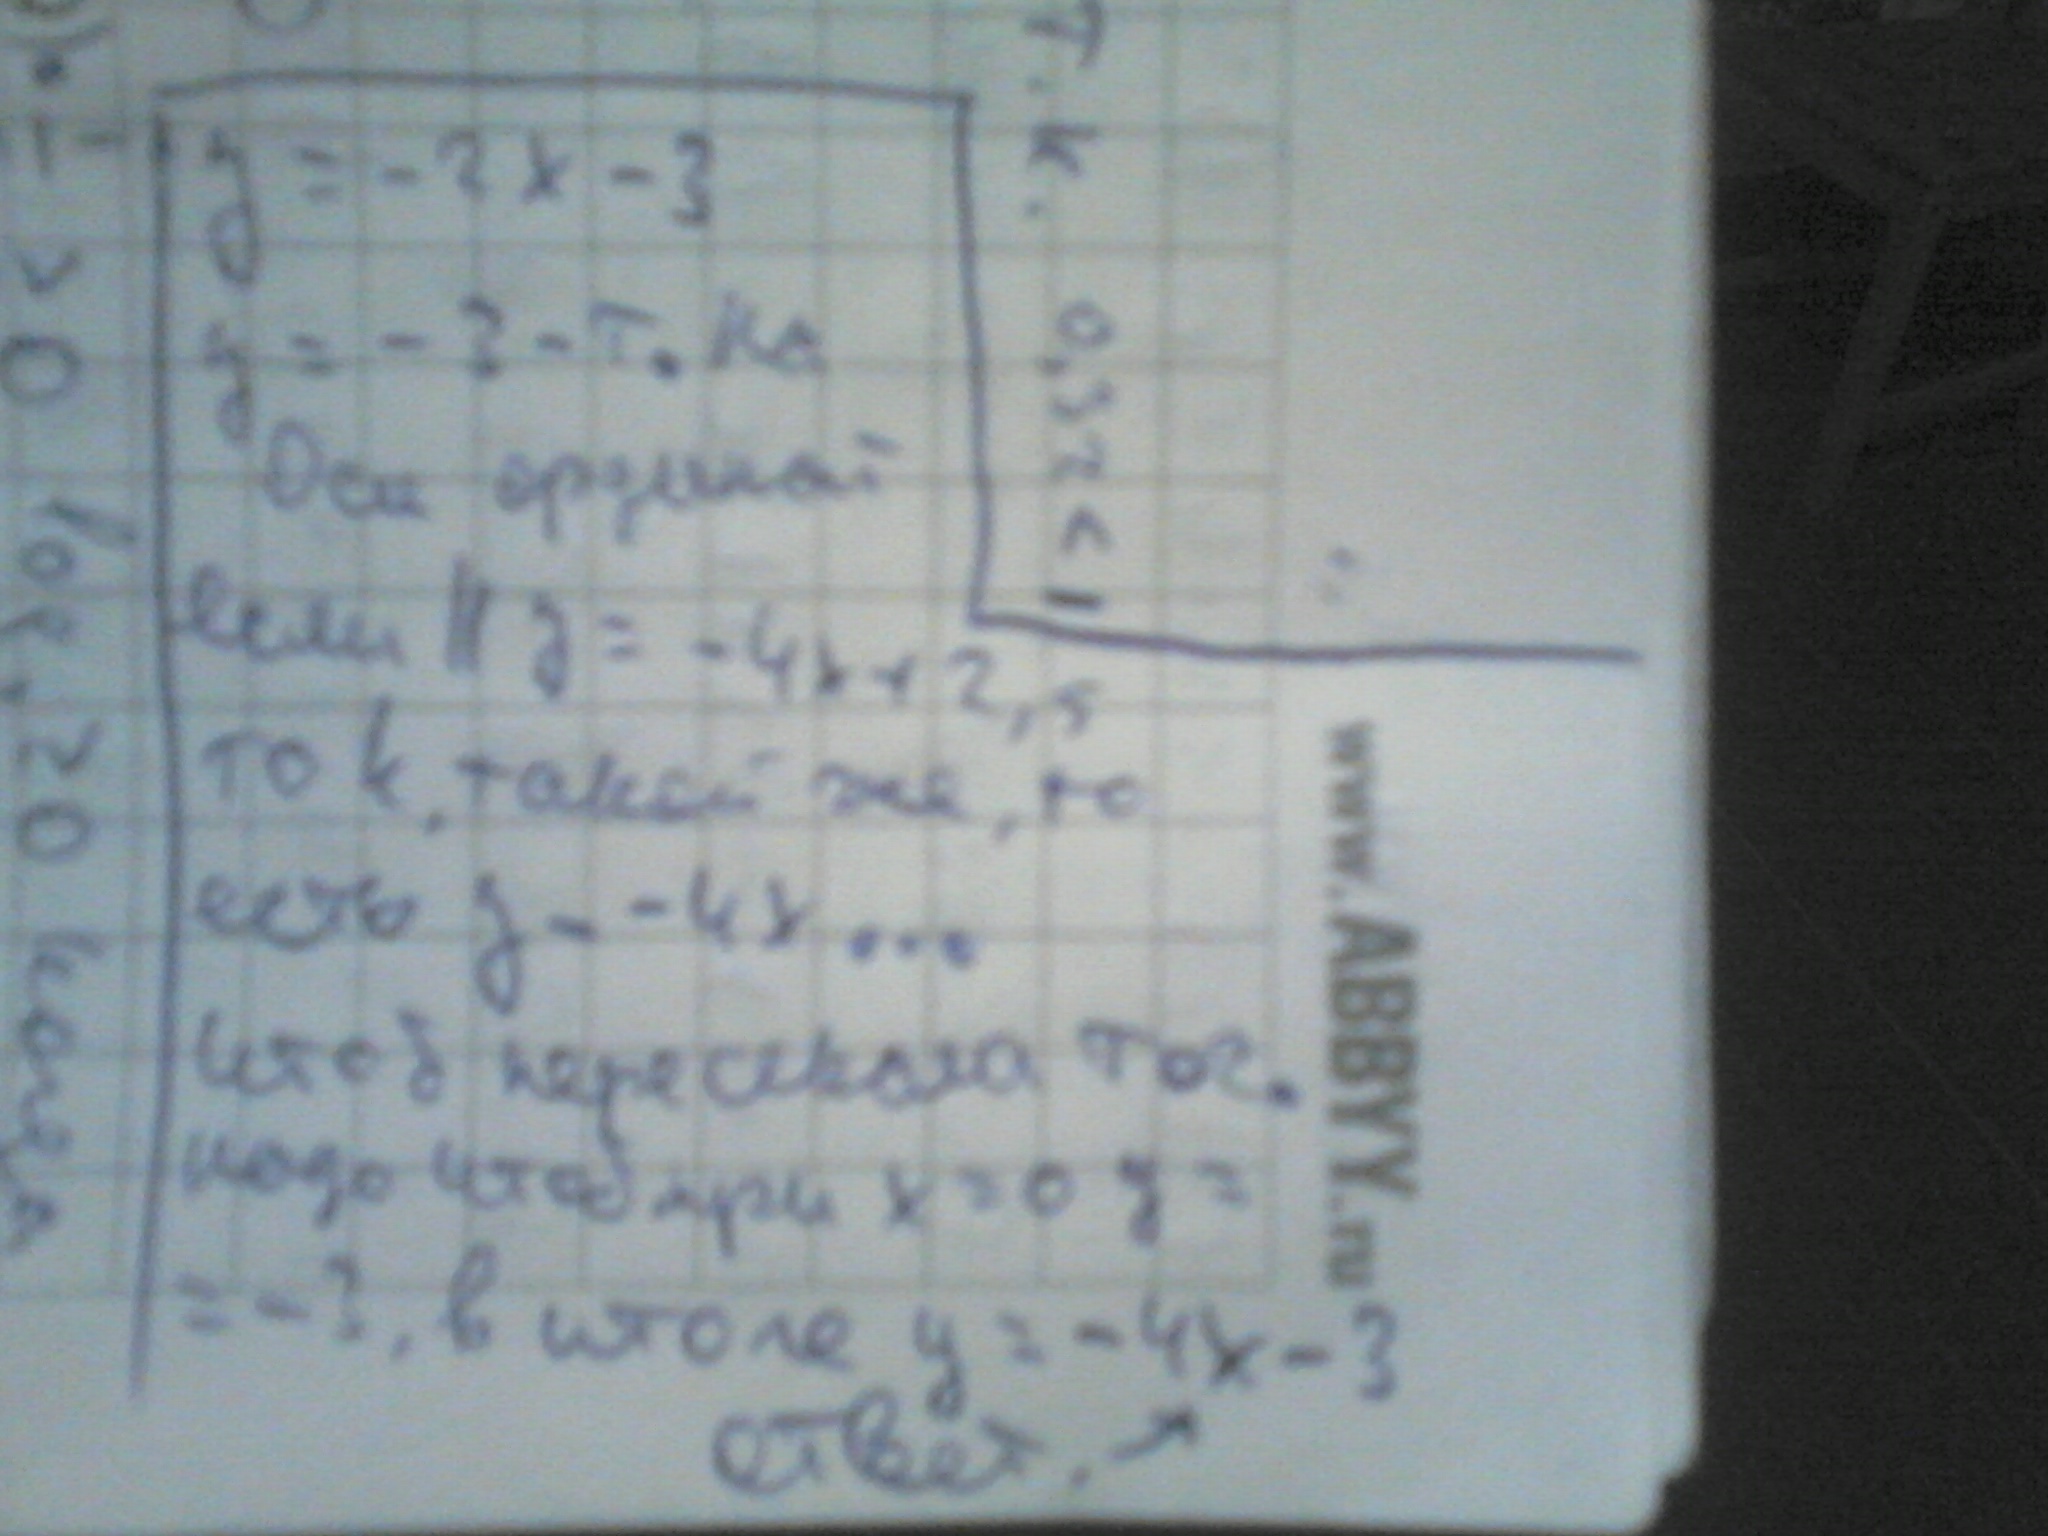 y = -2x - 3
y = -3 - т. на
Оси ординат
если || y = -4x + 2,5
то k, такой же, то
есть y = -4x ...
чтоб пересекала точ.
надо чтоб при x = 0 y =
= -3, в итоге y = -4x - 3
ответ. ↗
т.к. 0,32 < 1
www.ABBYY.ru